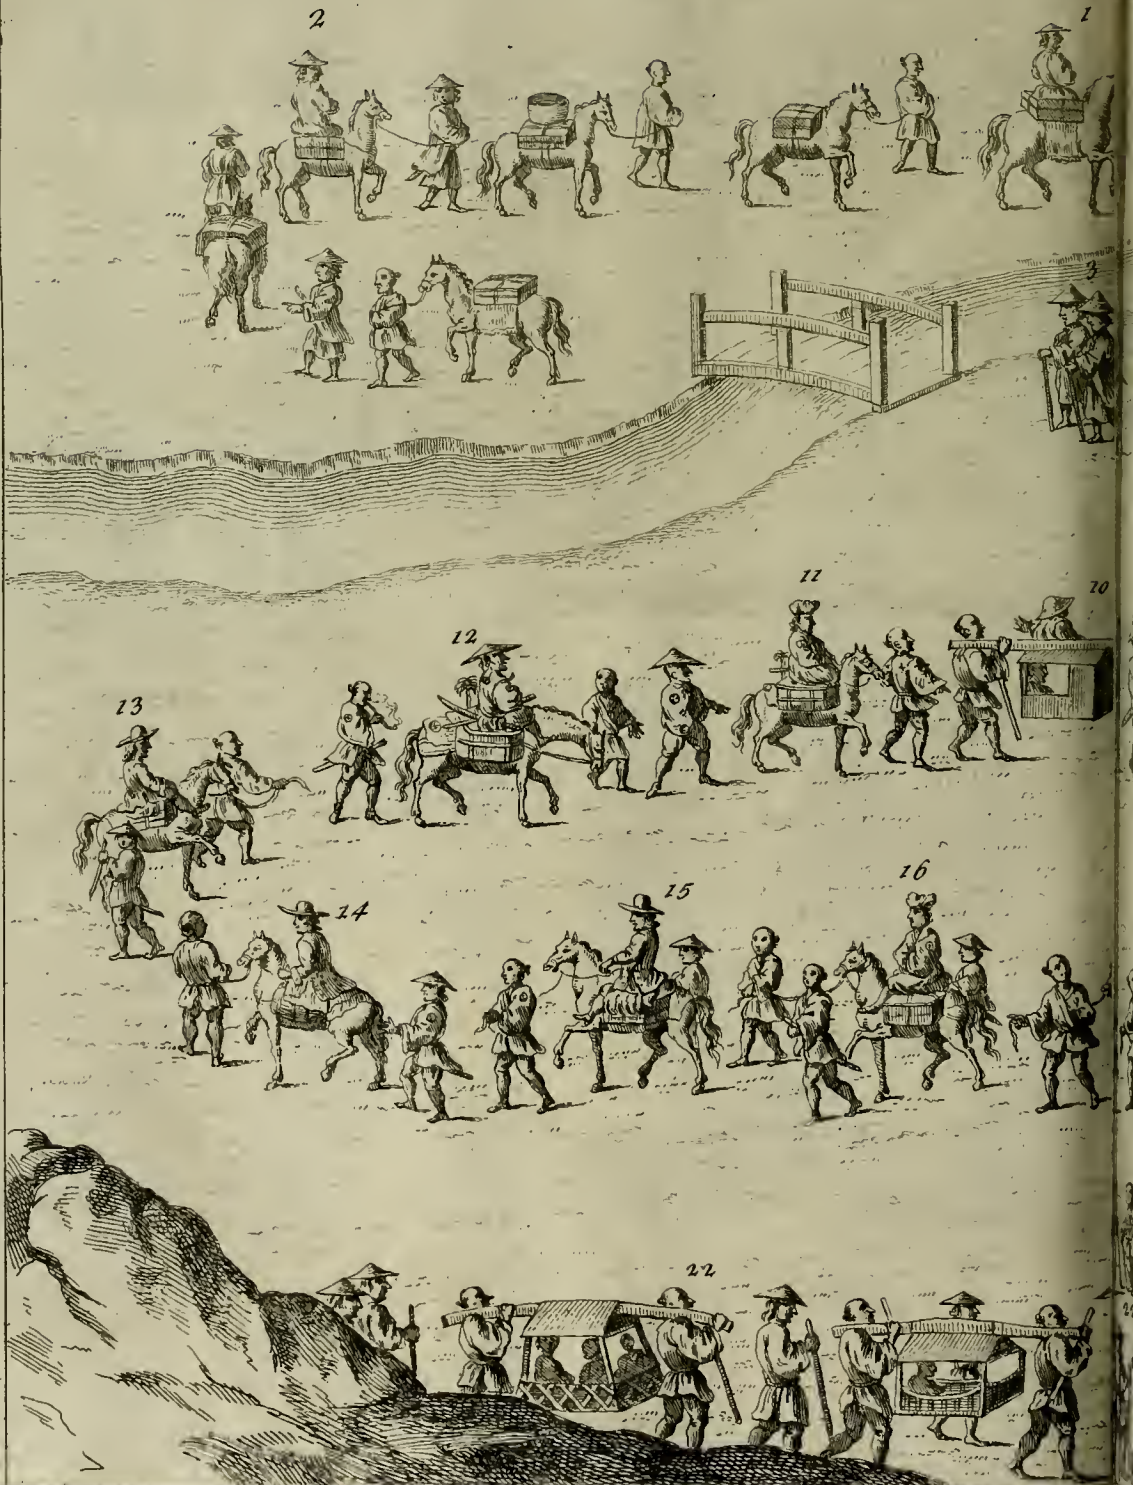 2
1
3
11
10
12
13
16
15
14
22